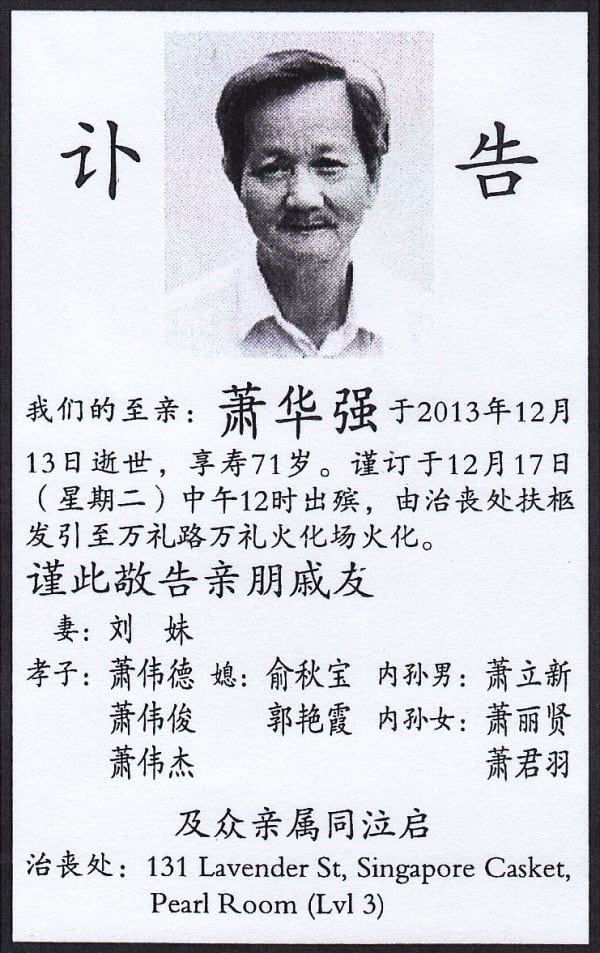 讣 告
我们的至亲：萧华强于2013年12月
13日逝世，享寿71岁。谨订于12月17日
（星期二）中午12时出殡，由治丧处扶柩
发引至万礼路万礼火化场火化。
谨此敬告亲朋戚友
妻：刘 妹
孝子：萧伟德 媳：俞秋宝 内孙男：萧立新
萧伟俊 郭艳霞 内孙女：萧丽贤
萧伟杰 萧君羽
及众亲属同泣启
治丧处：131 Lavender St, Singapore Casket,
Pearl Room (Lvl 3)